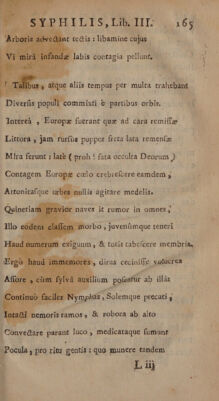 SYPHILIS, Lib. III. 165
Arboris advectant tectis : libamine cujus
Vi mirâ infandæ labis contagia pellunt.
Talibus, atque aliis tempus per multa trahebant
Diversis populi commisti è partibus orbis.
Intereà, Europæ fuerant quæ ad cara remissæ
Littora, jam rursùs puppes freta lata remensæ
Mira ferunt : latè ( proh ! fata occulta Deorum )
Contagem Europæ cœlo crebrescere eamdem,
Attonitasque urbes nullis agitare medelis.
Quinetiam gravior naves it rumor in omnes,
Illo eodem classem morbo, juvenumque teneri
Haud numerum exiguum, & totis tabescere membris.
Ergò haud immemores, diras cecinisse volucres
Affore, cùm sylvâ auxilium poscatur ab illâ;
Continuò faciles Nymphas, Solemque precati,
Intacti nemoris ramos, & robora ab alto
Convectare parant luco, medicataque sumunt
Pocula, pro ritu gentis : quo munere tandem
L iij